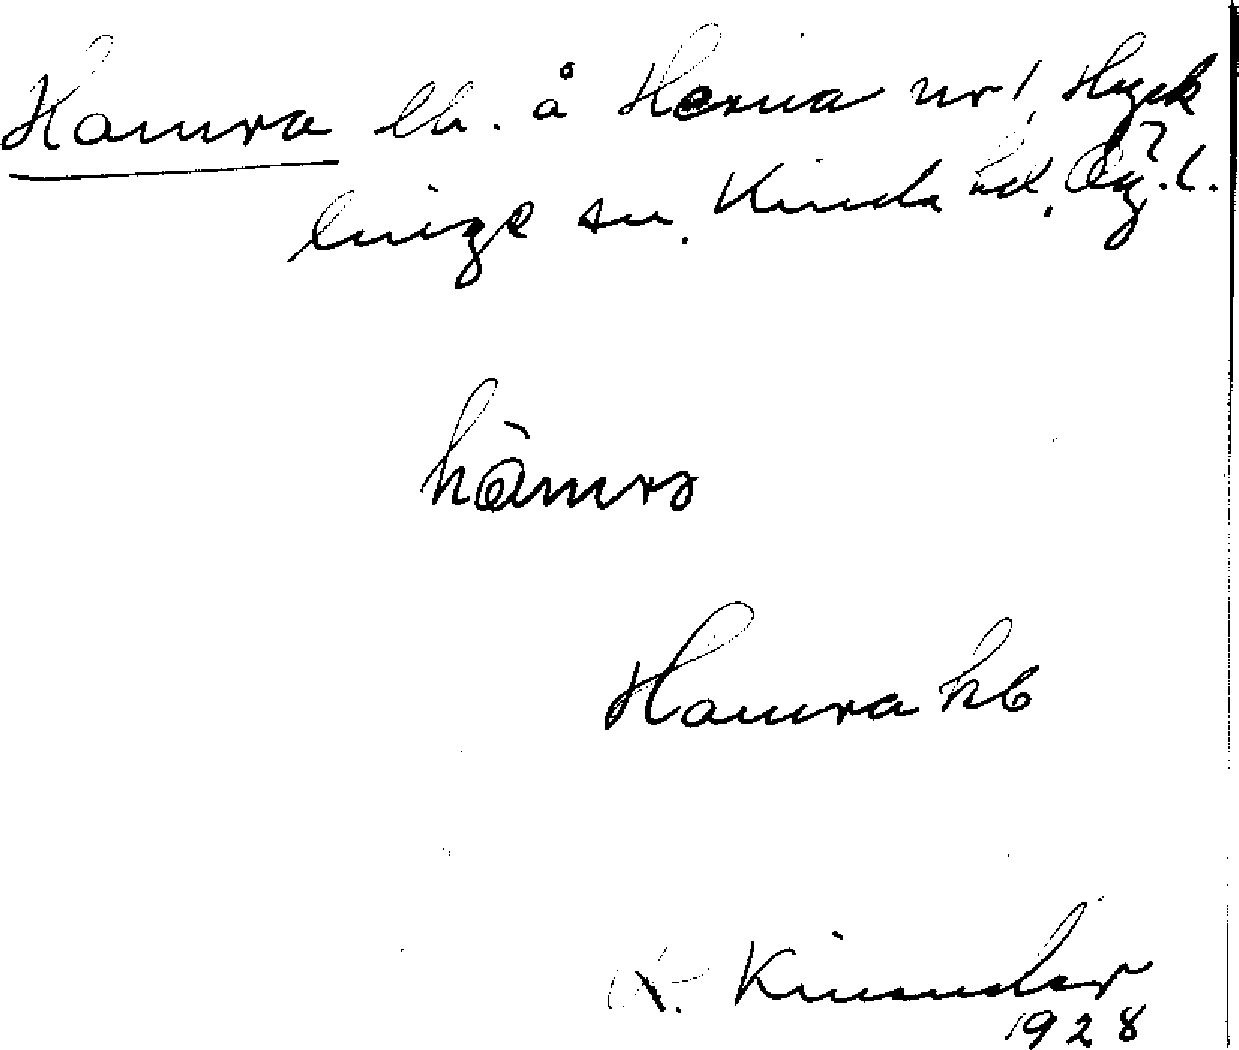 Hamra lh. å Herna nr 1, Hyck
linge sn. Kinda hd, Ög. l.
hàmra
Hamra hb
K. Kinander
1928